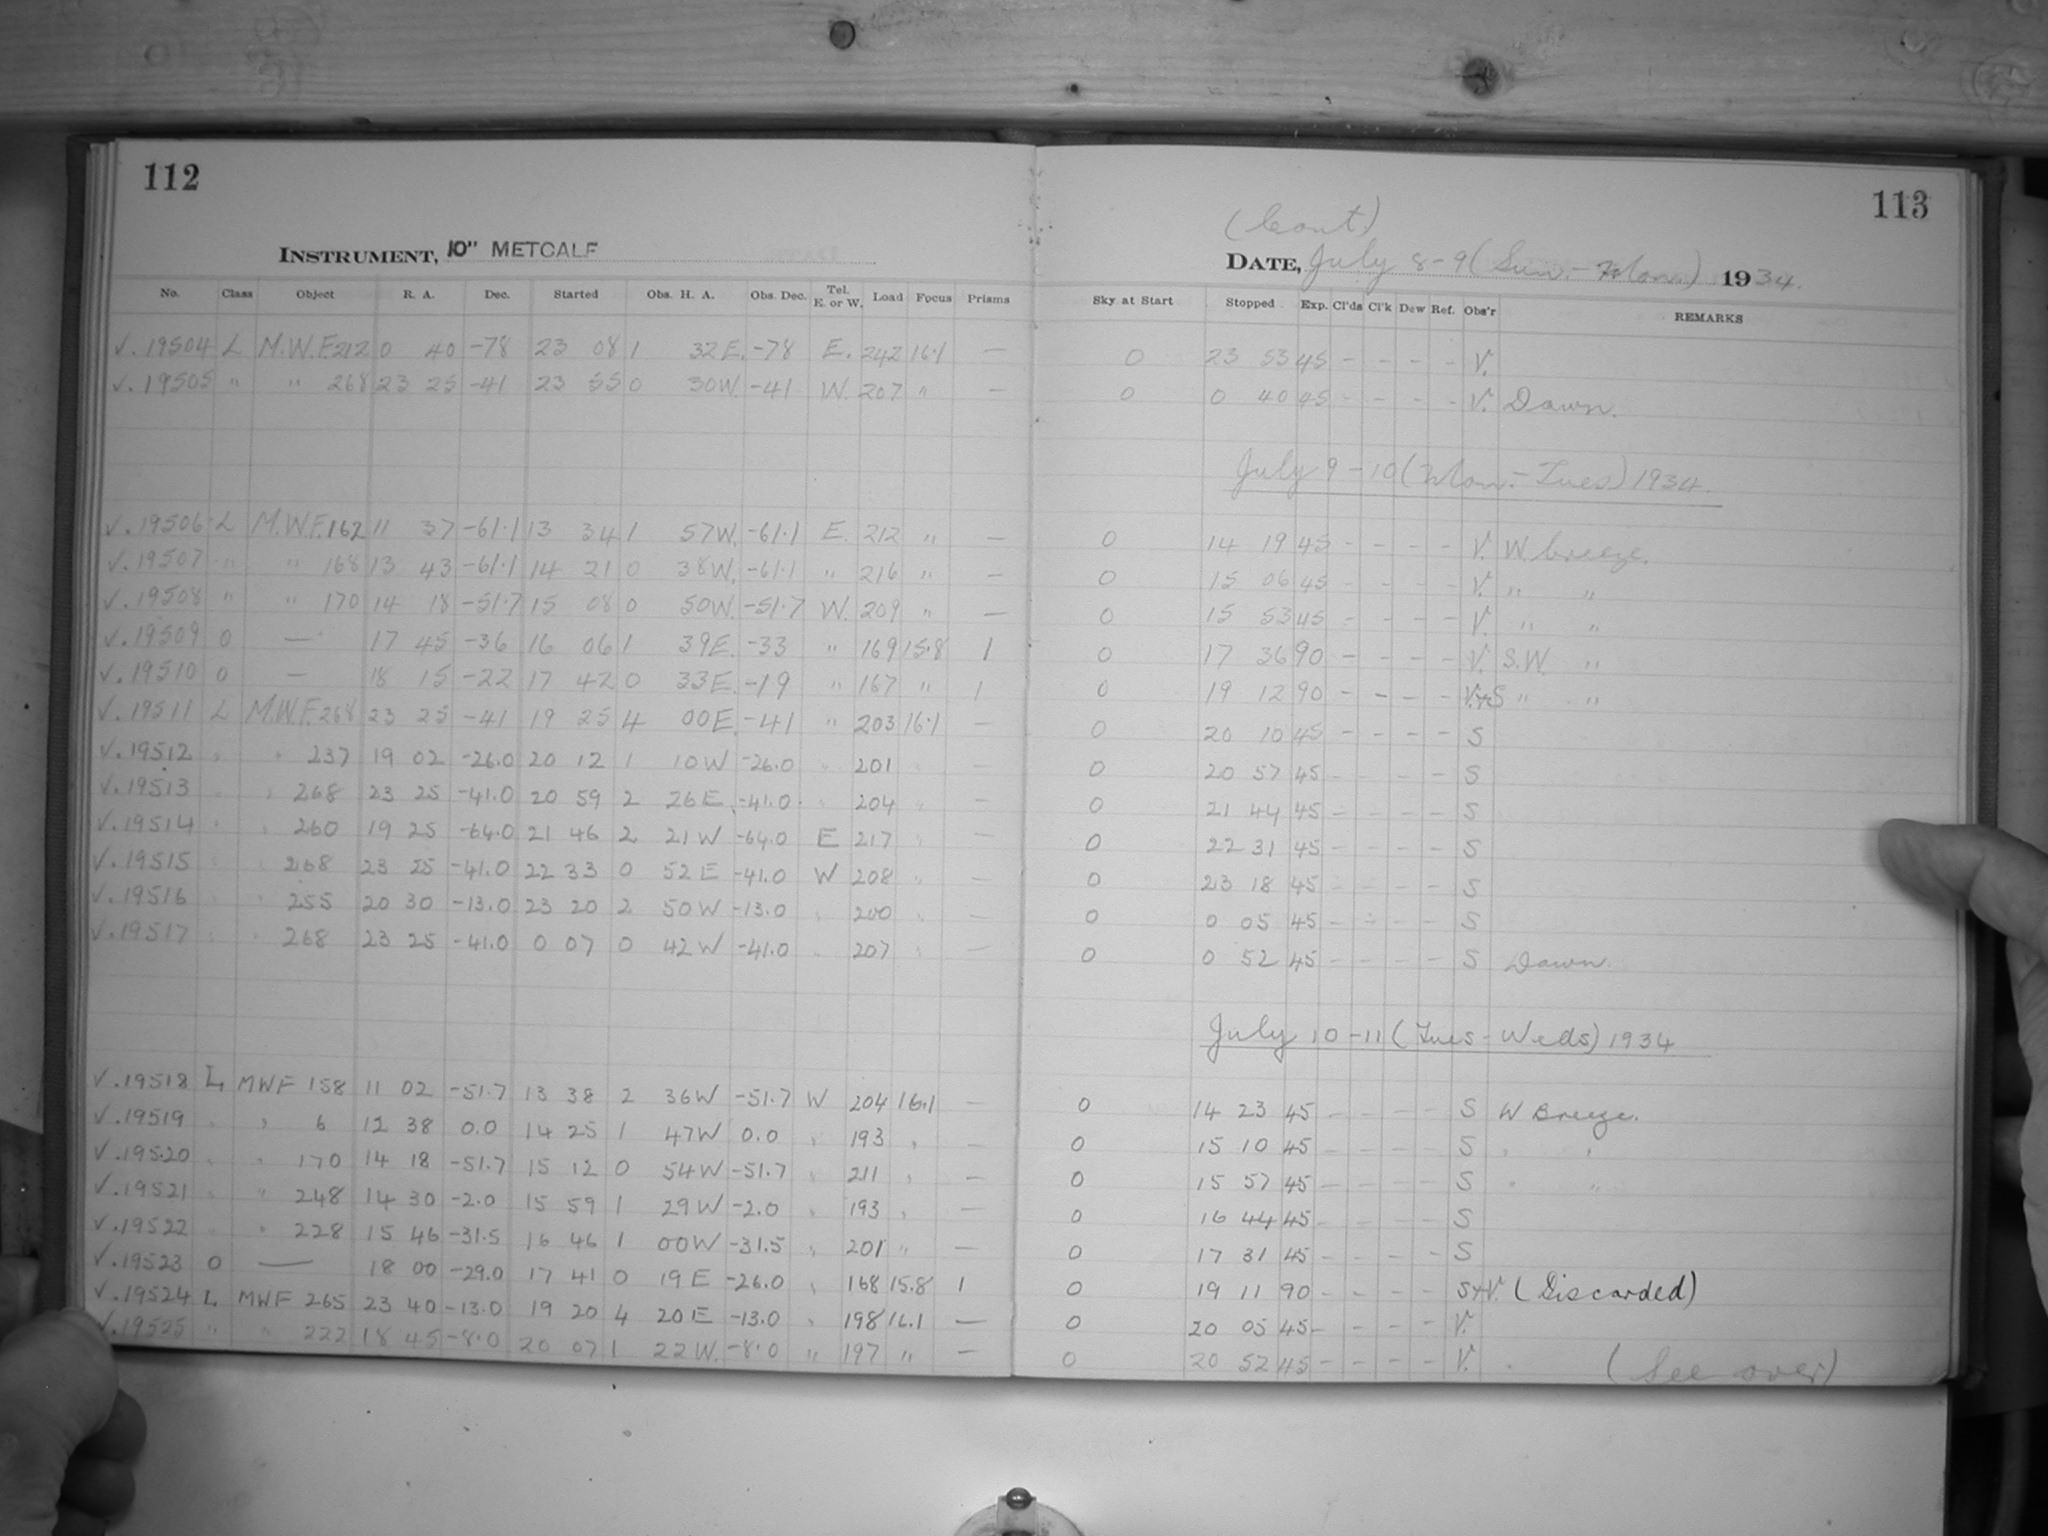 112
INSTRUMENT, 10" METCALF
No. Class Object R. A. Dec. Started Obs. H. A. Obs. Dec. Tel. E. or W. Load Focus Prisms
√.19504 L M.W.F.212 0 40 -78 23 08 1 32E. -78 E. 242 16.1 —
√.19505 " " 268 23 25 -41 23 55 0 30W. -41 W. 207 " —
√.19506 L M.W.F.162 11 37 -61.1 13 34 1 57W. -61.1 E. 212 " —
√.19507 " " 168 13 43 -61.1 14 21 0 38W. -61.1 " 216 " —
√.19508 " " 170 14 18 -51.7 15 08 0 50W. -51.7 W. 209 " —
√.19509 0 — 17 45 -36 16 06 1 39E. -33 " 169 15.8 1
√.19510 0 — 18 15 -22 17 42 0 33E. -19 " 167 " 1
√.19511 L M.W.F.268 23 25 -41 19 25 4 00E. -41 " 203 16.1 —
√.19512 " " 237 19 02 -26.0 20 12 1 10W -26.0 " 201 " —
√.19513 " " 268 23 25 -41.0 20 59 2 26E -41.0 " 204 " —
√.19514 " " 260 19 25 -64.0 21 46 2 21W -64.0 E 217 " —
√.19515 " " 268 23 25 -41.0 22 33 0 52E -41.0 W 208 " —
√.19516 " " 255 20 30 -13.0 23 20 2 50W -13.0 " 200 " —
√.19517 " " 268 23 25 -41.0 0 07 0 42W -41.0 " 207 " —
√.19518 L MWF 158 11 02 -51.7 13 38 2 36W -51.7 W 204 16.1 —
√.19519 " " 6 12 38 0.0 14 25 1 47W 0.0 " 193 " —
√.19520 " " 170 14 18 -51.7 15 12 0 54W -51.7 " 211 " —
√.19521 " " 248 14 30 -2.0 15 59 1 29W -2.0 " 193 " —
√.19522 " " 228 15 46 -31.5 16 46 1 00W -31.5 " 201 " —
√.19523 0 — 18 00 -29.0 17 41 0 19E -26.0 " 168 15.8 1
√.19524 L MWF 265 23 40 -13.0 19 20 4 20E -13.0 " 198 16.1 —
√.19525 " " 222 18 45 -8.0 20 07 1 22W. -8.0 " 197 " —
113
(Cont)
DATE, July 8-9 (Sun.-Mon.) 1934.
Sky at Start Stopped Exp. Cl'ds Cl'k Dew Ref. Obs'r REMARKS
0 23 53 45 - - - - V.
0 0 40 45 - - - - V. Dawn.
July 9-10 (Mon.-Tues) 1934.
0 14 19 45 - - - - V. W. breeze.
0 15 06 45 - - - - V. " "
0 15 53 45 - - - - V. " "
0 17 36 90 - - - - V. S.W. "
0 19 12 90 - - - - V.+S " "
0 20 10 45 - - - - S
0 20 57 45 - - - - S
0 21 44 45 - - - - S
0 22 31 45 - - - - S
0 23 18 45 - - - - S
0 0 05 45 - - - - S
0 0 52 45 - - - - S Dawn.
July 10-11 (Tues-Weds) 1934
0 14 23 45 - - - - S W Breeze.
0 15 10 45 - - - - S " "
0 15 57 45 - - - - S " "
0 16 44 45 - - - - S
0 17 31 45 - - - - S
0 19 11 90 - - - - S+V. (Discarded)
0 20 05 45 - - - - V.
0 20 52 45 - - - - V.
(See over)